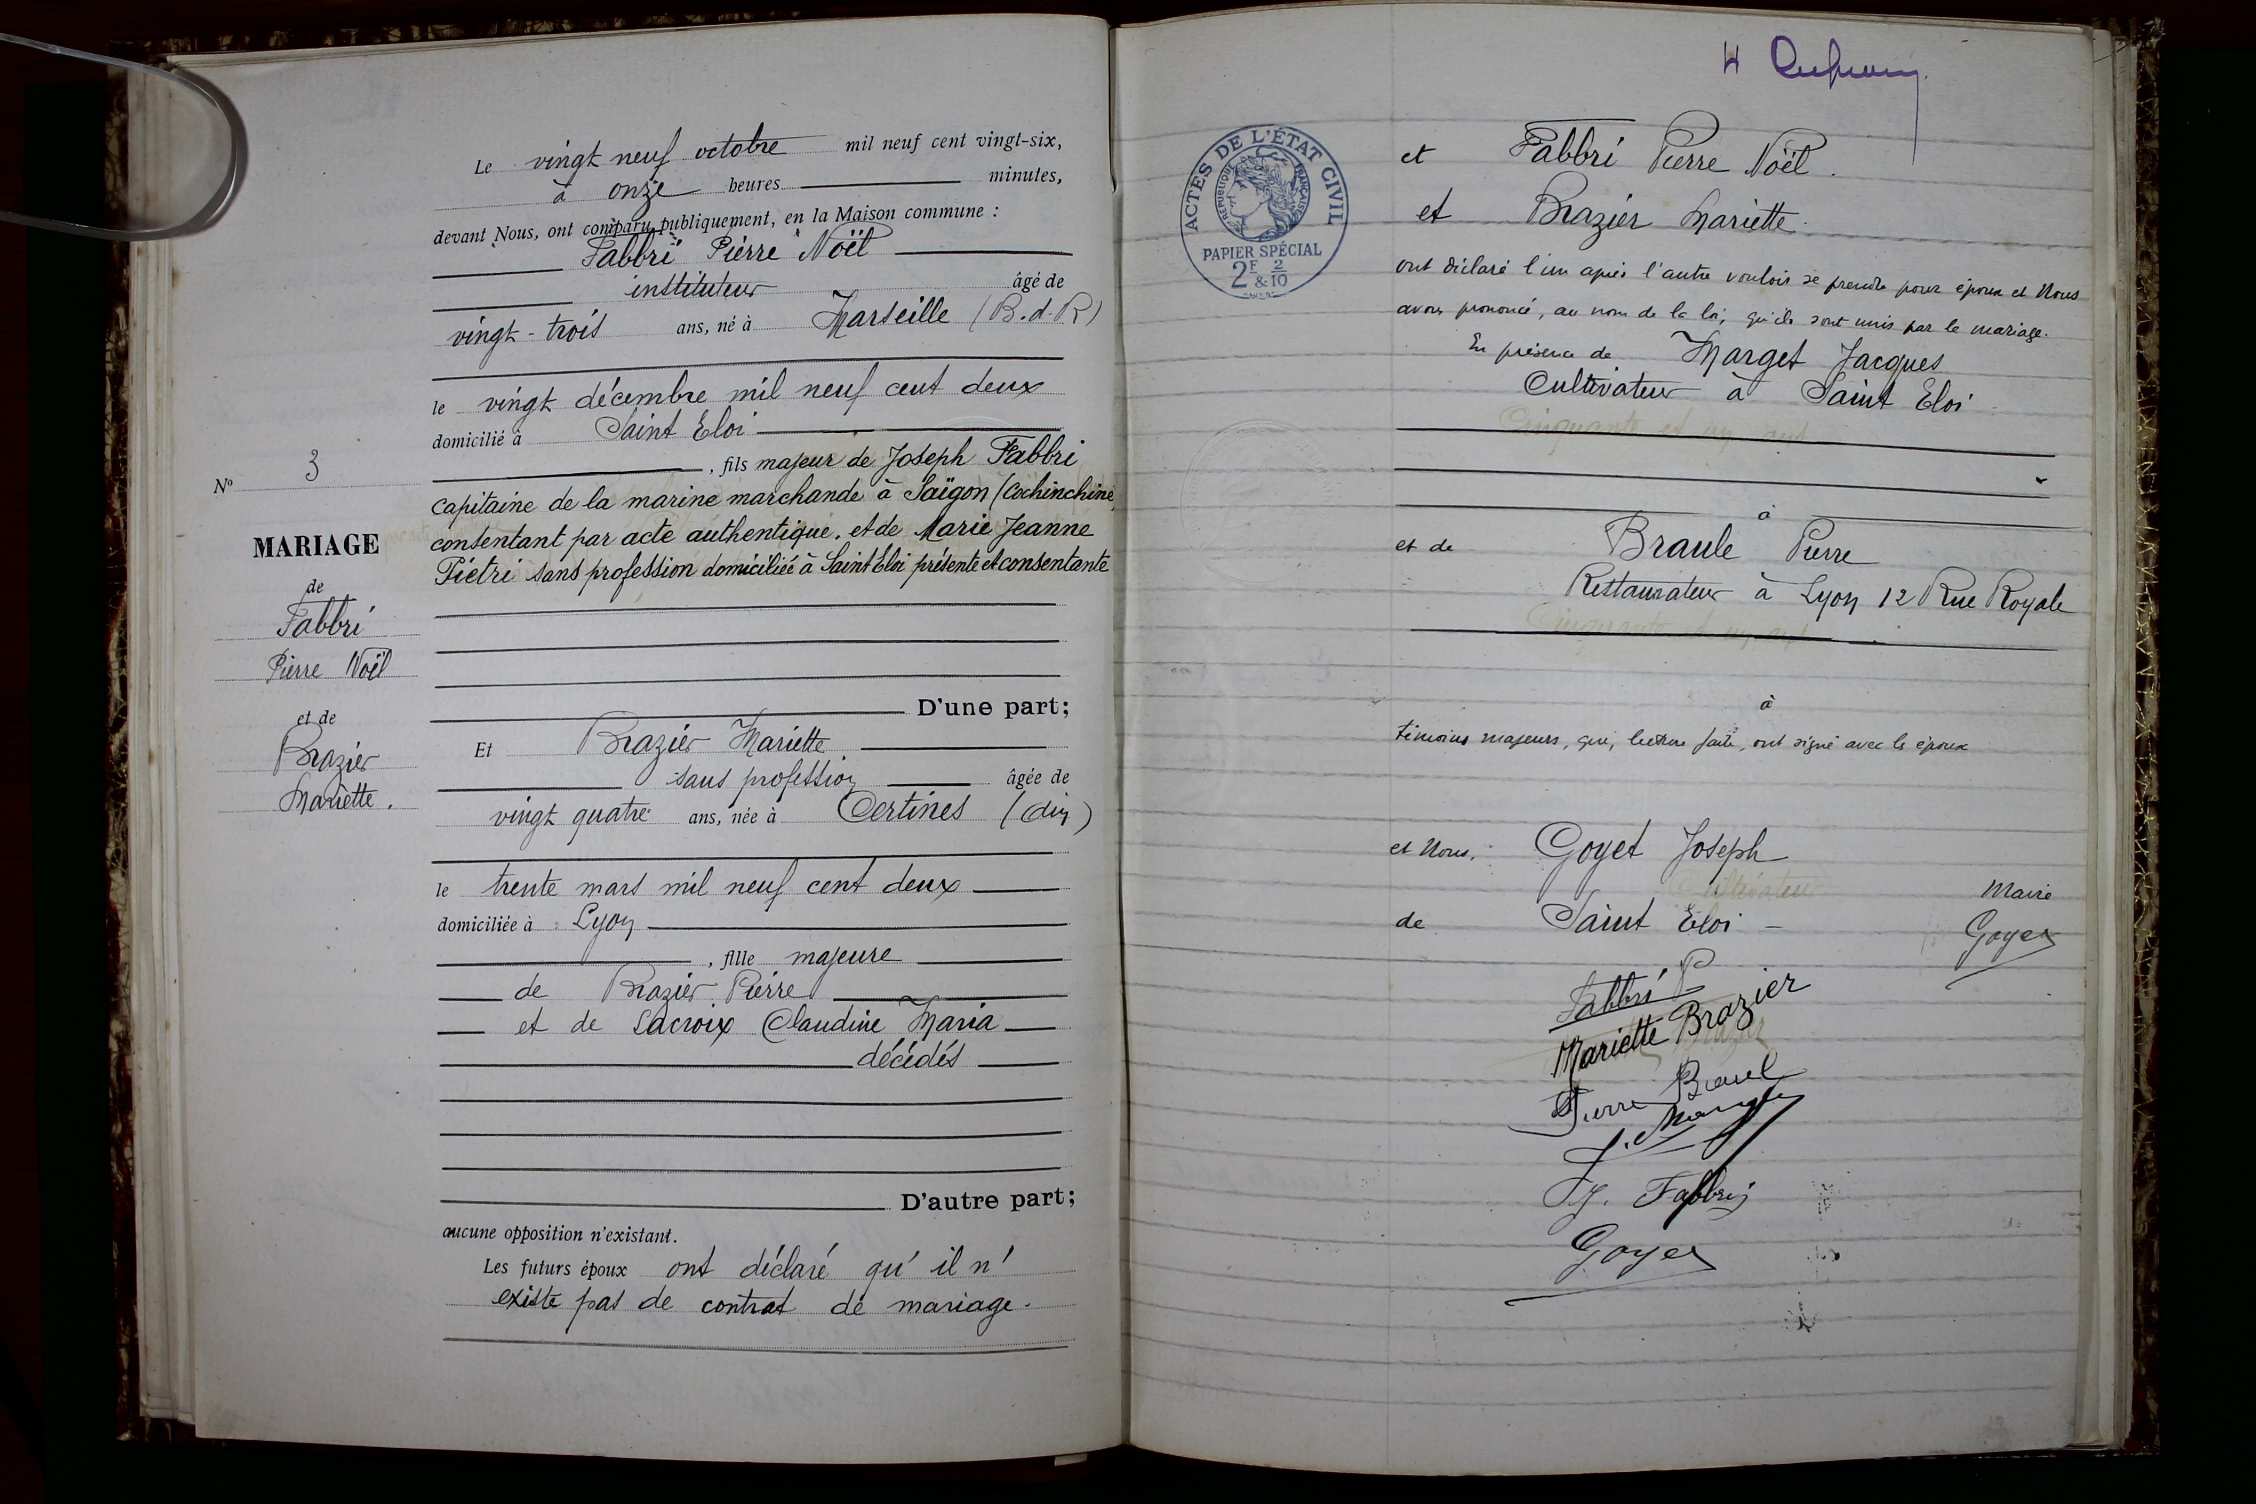 Le vingt neuf octobre mil neuf cent vingt-six,
à onze heures minutes,
devant Nous, ont comparu publiquement, en la Maison commune :
Fabbri Pierre Noël
instituteur âgé de
vingt-trois ans, né à Marseille (B.d.R)
le vingt décembre mil neuf cent deux
domicilié à Saint Eloi
, fils majeur de Joseph Fabbri
capitaine de la marine marchande à Saïgon (Cochinchine)
consentant par acte authentique. et de Marie Jeanne
Piétri sans profession domiciliée à Saint Eloi présente et consentante
D'une part;
Nº 3
MARIAGE
de
Fabbri
Pierre Noël
et de
Brazier
Mariette.
Et Brazier Mariette
sans profession âgée de
vingt quatre ans, née à Certines (Ain)
le trente mars mil neuf cent deux
domiciliée à Lyon
, fille majeure
de Brazier Pierre
et de Lacroix Claudine Maria
décédés
D'autre part;
aucune opposition n'existant.
Les futurs époux ont déclaré qu'il n'
existe pas de contrat de mariage.
H
ACTES DE L'ÉTAT CIVIL
RÉPUBLIQUE FRANÇAISE
PAPIER SPÉCIAL
2F & 2/10
et Fabbri Pierre Noël.
et Brazier Mariette.
ont déclaré l'un après l'autre vouloir se prendre pour époux et Nous
avons prononcé, au nom de la loi, qu'ils sont unis par le mariage.
En présence de Marget Jacques
Cultivateur à Saint Eloi
à
et de Braule Pierre
Restaurateur à Lyon 12 Rue Royale
à
témoins majeurs, qui, lecture faite, ont signé avec les époux
et Nous, Goyet Joseph
Maire
de Saint Eloi
Goyet
Fabbri P
Mariette Brazier
Pierre Braul
J. Fabbri
Goyet